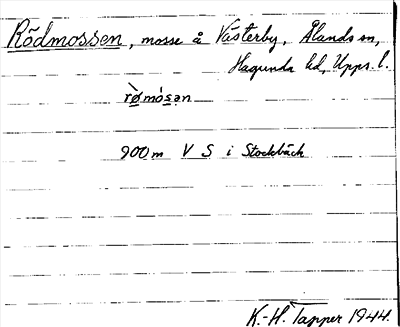 Rödmossen, mosse å Västerby, Ålands sn,
Hagunda hd, Upps. l.
rø̀mósən
900 m V S i Stockbäck
K.-H. Tapper 1944.